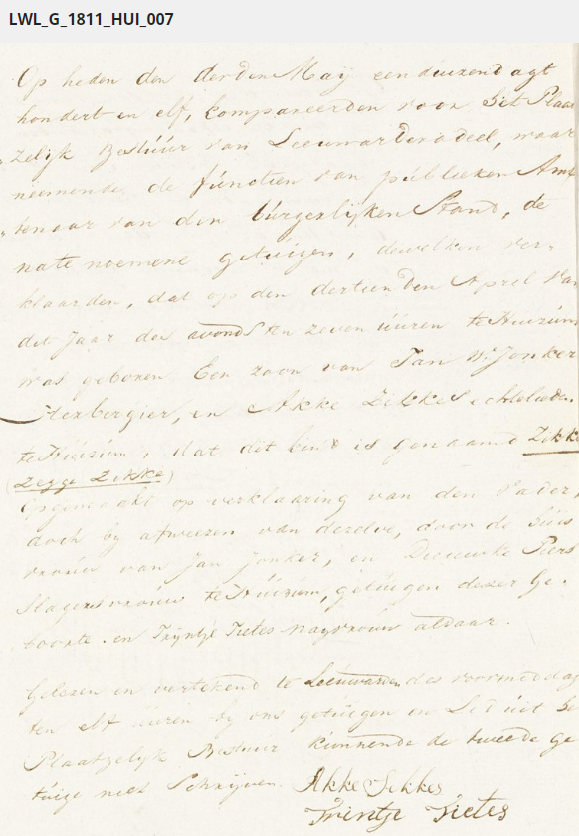 LWL_G_1811_HUI_007
Op heden den derden Maij eenduizend agt
hondert en elf, kompareerden voor het Plaat
zelijk Bestuur van Leeuwarderadeel, waar
neemende de functien van publieken Amb
„tenaar van den burgerlijken Stand, de
nate noemene getuigen, dewelken ver„
klaarden, dat op den dertienden April van
dit Jaar des avonds ten zeven uuren te Huizum
was geboren Een zoon van Jan W. Jonker
Herbergier, en Akke Zikkes echtelieden
te Huizum, dat dit kind is genaamd Zikke
(Zegge Zikke)
Opgemaakt op verklaaring van den Vader,
doch by afweezen van dezelve, door de Huis
vrouw van Jan Jonker, en Dieuwke Piers
Slagersvrouw te Huizum, getuigen dezer Ge„
boorte en Trijntje Tietes Naijvrouw aldaar.
Gelezen en vertekend te Leeuwarden des voormiddag
ten elf uuren by ons getuigen en Lit uit het
Plaatzelyk Bestuur kunnende de tweede ge
tuige niet Schrijven.
Akke Sekkes
Trintje Tietes